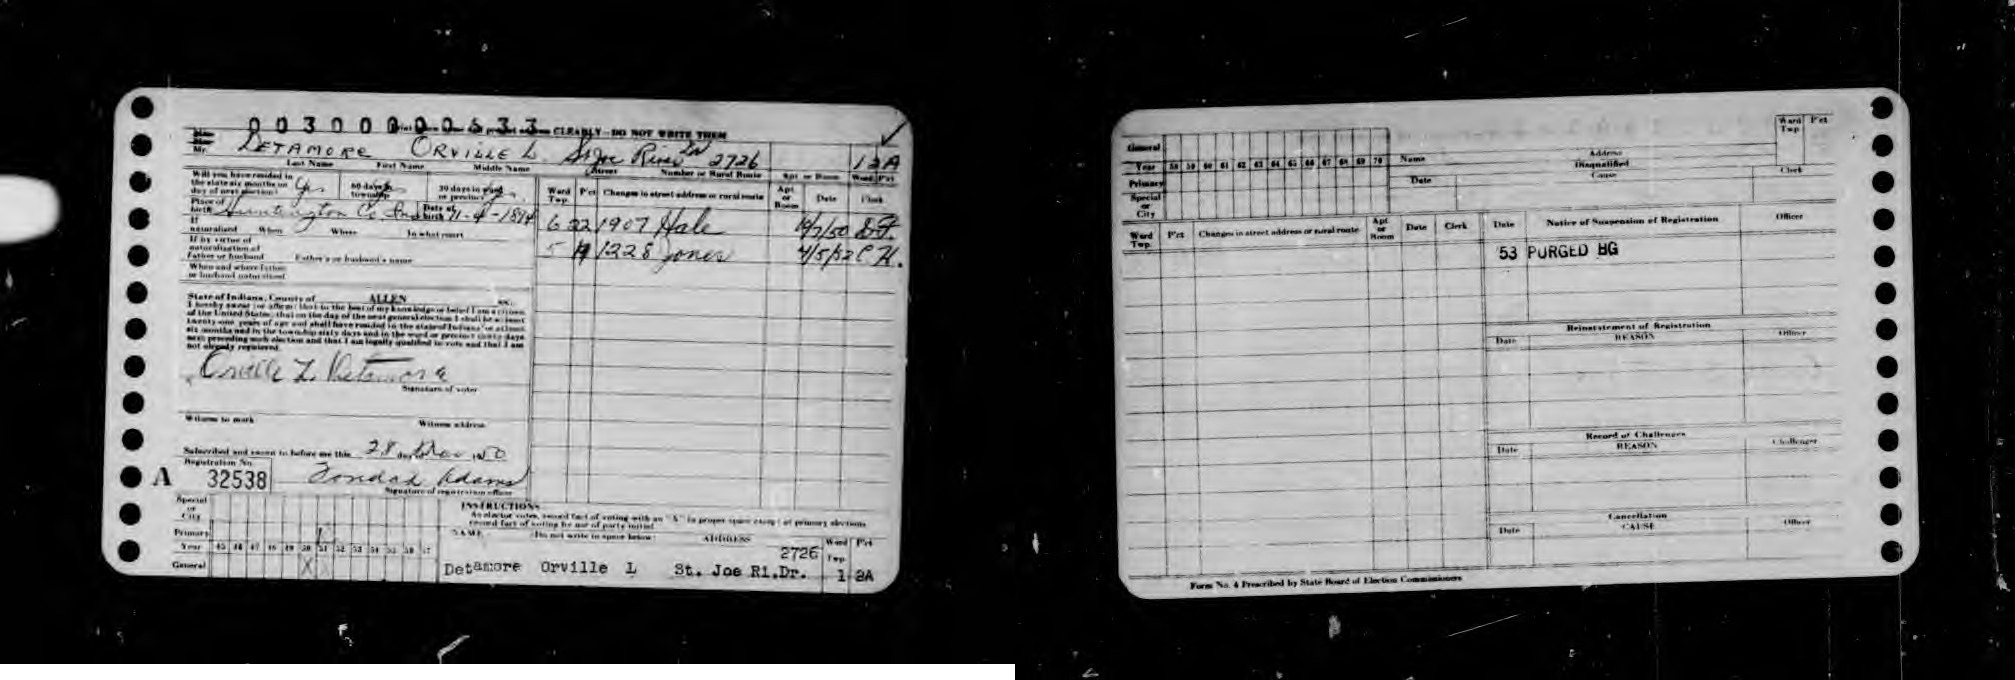 0030000533
CLEARLY—DO NOT WRITE THEM
Mr. DETAMORE ORVILLE L. St Joe River Dr 2726 1 2A
Last Name First Name Middle Name Street Number or Rural Route Apt or Room Ward Pct
Will you have resided in the state six months on day of next election? Yes 60 days in township 30 days in ward or precinct
Place of birth Huntington Co Ind Date of birth
Ward Twp. P'ct Changes in street address or rural route Apt or Room Date Clerk
6 22 1907 Hale 10/2/50
5 1228 Jones 4/5/52 C H.
If naturalized When Where In what court
If by virtue of naturalization of Father or husband Father's or husband's name
When and where father or husband naturalized
State of Indiana, County of ALLEN ss.
I hereby swear (or affirm) that to the best of my knowledge or belief I am a citizen
of the United States; that on the day of the next general election I shall be at least
twenty-one years of age and shall have resided in the state of Indiana at least
six months and in the township sixty days and in the ward or precinct thirty days
next preceding such election and that I am legally qualified to vote and that I am
not already registered.
Orville L Detamore
Signature of voter
Witness to mark Witness address
Subscribed and sworn to before me this 28 day
Registration No.
A 32538 Adams
Signature of registration officer
Special or City
Primary
Year 45 46 47 48 49 50 51 52 53 54 55 56 57
General X
INSTRUCTIONS
As elector votes, record fact of voting with an "X" in proper space except at primary elections
record fact of voting by use of party initial
NAME (Do not write in space below) ADDRESS Ward Twp. P'ct
2726
Detamore Orville L St. Joe Ri.Dr. 1 2A
General
Year 58 59 60 61 62 63 64 65 66 67 68 69 70
Primary
Special or City
Name Address Ward Twp. P'ct
Disqualified
Date Cause Clerk
Ward Twp. P'ct Changes in street address or rural route Apt or Room Date Clerk
Date Notice of Suspension of Registration Officer
'53 PURGED BG
Reinstatement of Registration
Date REASON Officer
Record of Challenges
Date REASON Challenger
Cancellation
Date CAUSE Officer
Form No. 4 Prescribed by State Board of Election Commissioners